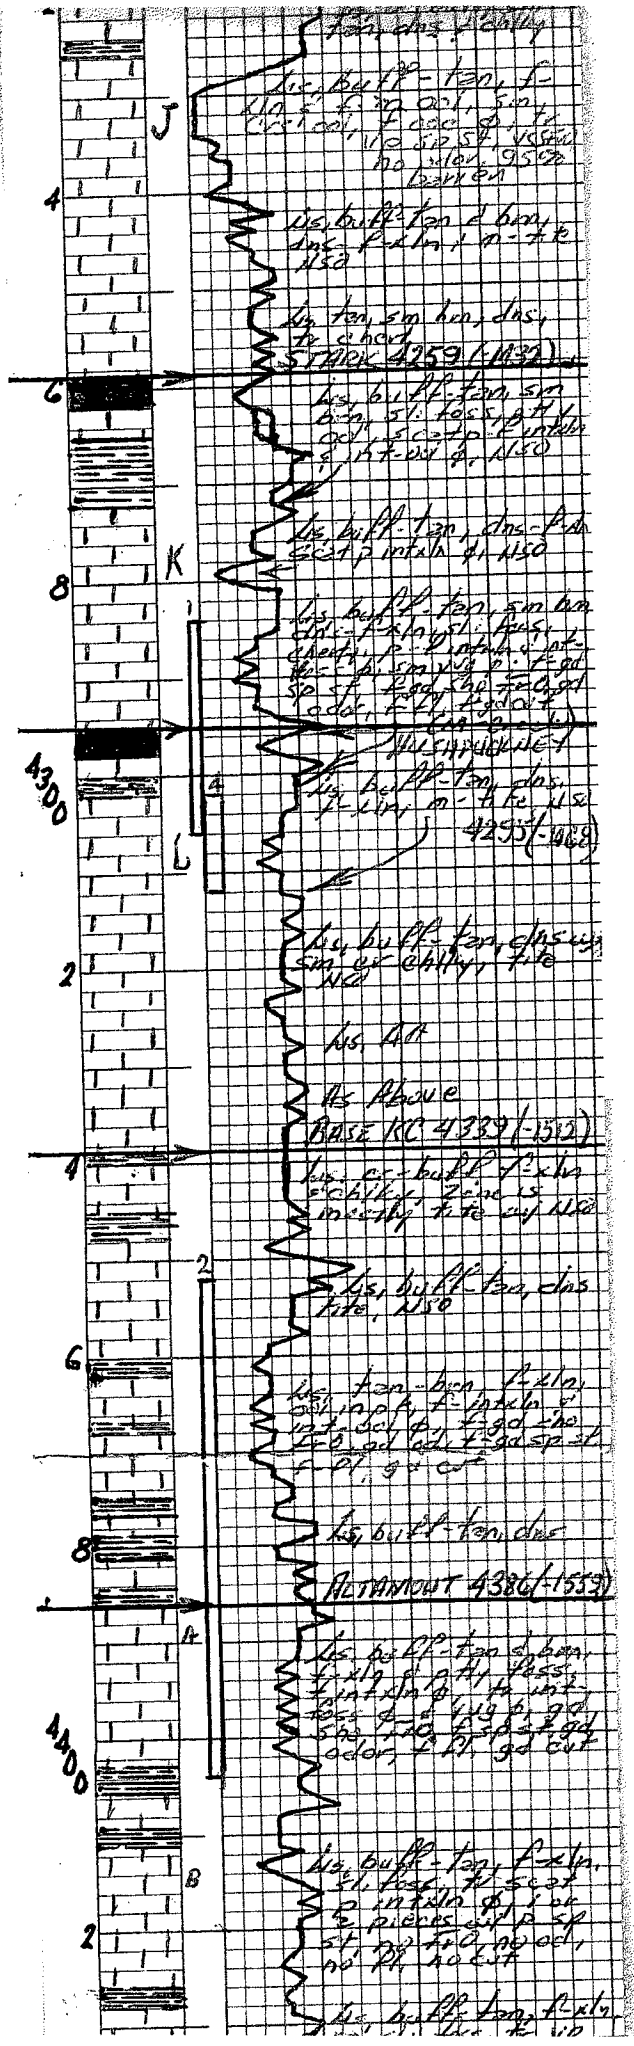 tan, dns, chlky
J
Ls, buff-tan, f-
xln s f-m ool, sm
no odor, 95%
barren
4
Ls, buff-tan & brn,
dns-f-xln, n-tite
NSO
Ls, tan, sm brn, dns,
tr chert
STARK 4259 (-1432)
6
Ls, buff-tan, sm
brn, sl. foss, ptly
ool, scat p intxln
& int-ool ϕ, NSO
K
Ls, buff-tan, dns-f-xln
scat p intxln ϕ, NSO
8
1
Ls, buff-tan, sm brn
dns-f-xln, sl. foss,
cherty, p-f intxln & int-
foss ϕ, sm vug p, f-gd
sp st, f-gd sho fro, gd
odor, f fl, f-gd cut
HUSHPUCKNEY
4300
4
Ls, buff-tan, dns,
f-xln, n-tite, NSO
4295 (-1468)
L
Ls, buff-tan, dns
sm cr chlky, tite
NSO
2
Ls, AA
As Above
BASE KC 4339 (-1512)
4
Ls, cr-buff f-xln
& chlky, zone is
mostly tite NSO
2
Ls, buff-tan, dns
tite, NSO
6
Ls, tan-brn, f-xln,
ool in pt, f-intxln &
int-ool ϕ, f-gd sho
fro, gd od, f-gd sp st
f-fl, gd cut
8
Ls, buff-tan, dns
ALTAMONT 4386 (-1559)
A
Ls, buff-tan & brn,
f-xln & ptly foss,
f intxln ϕ, tr int-
foss ϕ & vug p, gd
sho fro, f sp st, gd
odor, f fl, gd cut
4400
B
Ls, buff-tan, f-xln,
sl. foss, tr scat
p intxln ϕ, 1 or
2 pieces w/ p sp
st, no fro, no od,
no fl, no cut
2
Ls, buff-tan, f-xln,